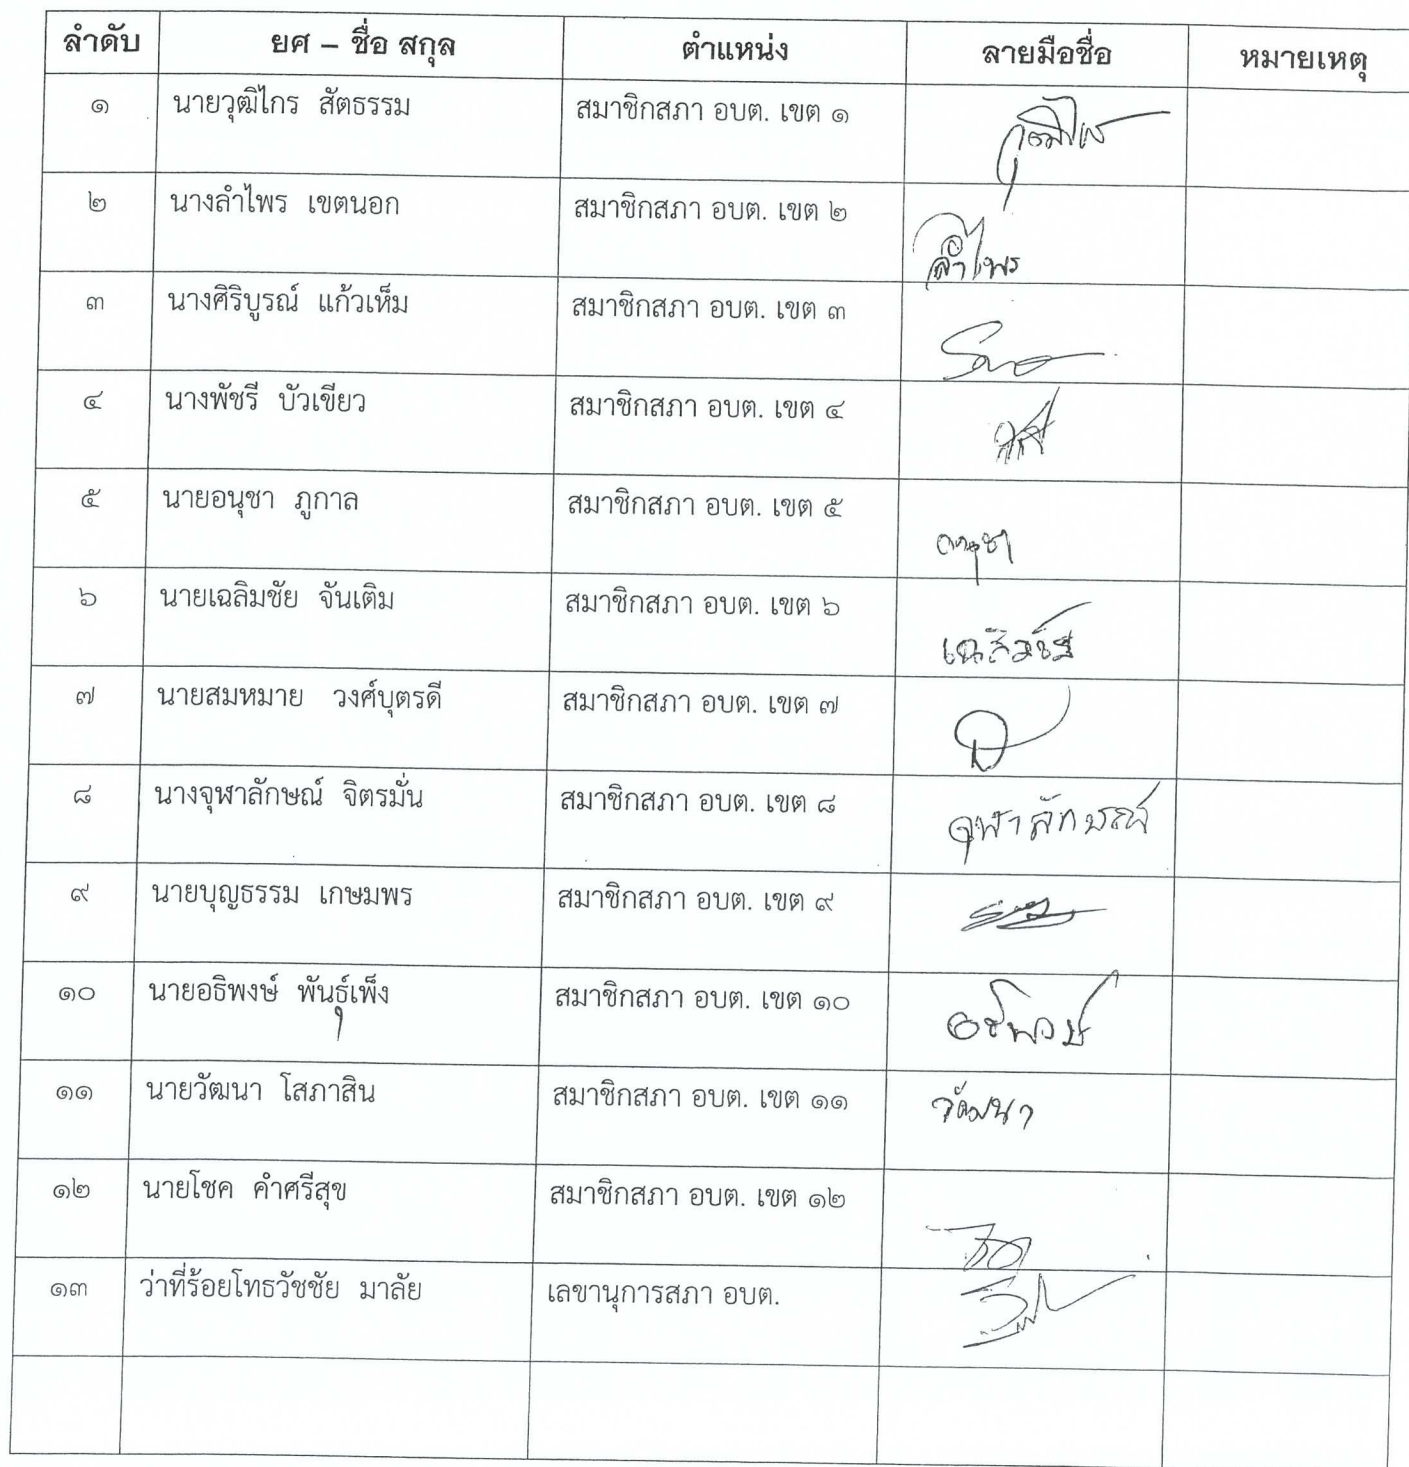 ลำดับ ยศ – ชื่อ สกุล ตำแหน่ง ลายมือชื่อ หมายเหตุ
๑ นายวุฒิไกร สัตธรรม สมาชิกสภา อบต. เขต ๑
๒ นางลำไพร เขตนอก สมาชิกสภา อบต. เขต ๒ ลำไพร
๓ นางศิริบูรณ์ แก้วเห็ม สมาชิกสภา อบต. เขต ๓
๔ นางพัชรี บัวเขียว สมาชิกสภา อบต. เขต ๔
๕ นายอนุชา ภูกาล สมาชิกสภา อบต. เขต ๕ อนุชา
๖ นายเฉลิมชัย จันเติม สมาชิกสภา อบต. เขต ๖ เฉลิมชัย
๗ นายสมหมาย วงศ์บุตรดี สมาชิกสภา อบต. เขต ๗
๘ นางจุฬาลักษณ์ จิตรมั่น สมาชิกสภา อบต. เขต ๘ จุฬาลักษณ์
๙ นายบุญธรรม เกษมพร สมาชิกสภา อบต. เขต ๙
๑๐ นายอธิพงษ์ พันธุ์เพ็ง สมาชิกสภา อบต. เขต ๑๐ อธิพงษ์
๑๑ นายวัฒนา โสภาสิน สมาชิกสภา อบต. เขต ๑๑ วัฒนา
๑๒ นายโชค คำศรีสุข สมาชิกสภา อบต. เขต ๑๒
๑๓ ว่าที่ร้อยโทธวัชชัย มาลัย เลขานุการสภา อบต.